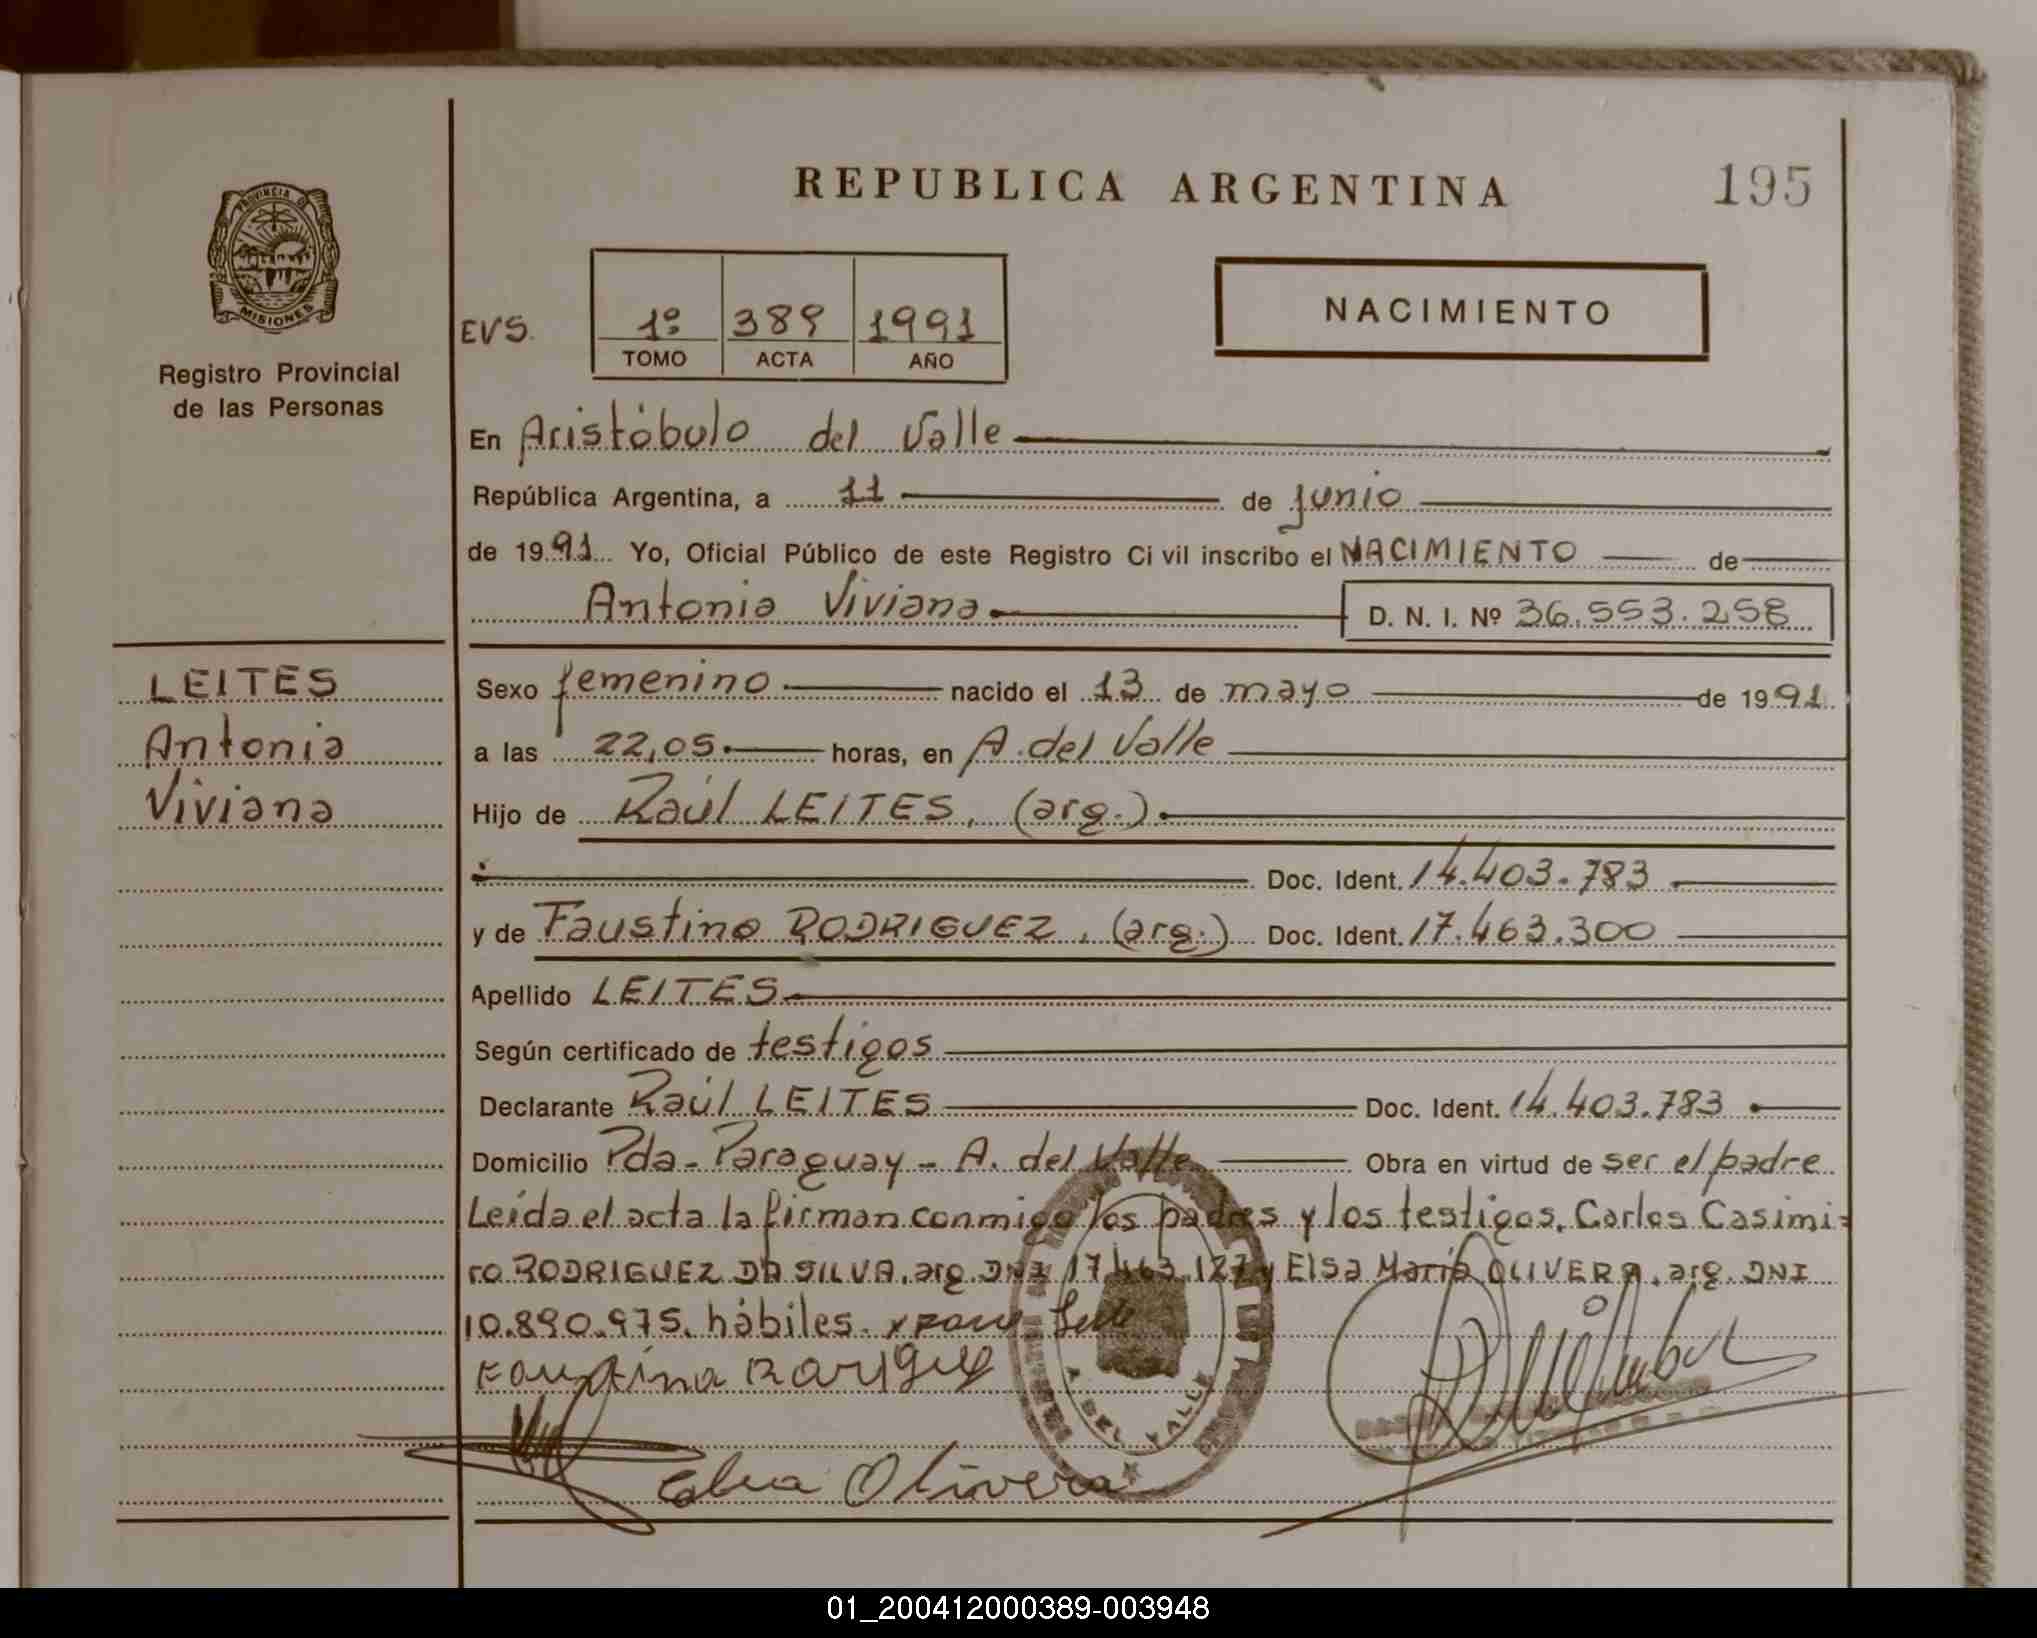 REPUBLICA ARGENTINA
195
PROVINCIA DE
MISIONES
Registro Provincial
de las Personas
EVS.
1º 389 1991
TOMO ACTA AÑO
NACIMIENTO
En Aristóbulo del Valle
República Argentina, a 11 de junio
de 1991 Yo, Oficial Público de este Registro Ci vil inscribo el NACIMIENTO de
Antonia Viviana D. N. I. Nº 36.553.258
LEITES
Antonia
Viviana
Sexo femenino nacido el 13 de mayo de 1991
a las 22,05 horas, en A. del Valle
Hijo de Raúl LEITES, (arg.)
Doc. Ident. 14.403.783
y de Faustina RODRIGUEZ, (arg.) Doc. Ident. 17.463.300
Apellido LEITES
Según certificado de testigos
Declarante Raúl LEITES Doc. Ident. 14.403.783
Domicilio Pda- Paraguay - A. del Valle Obra en virtud de ser el padre
Leída el acta la firman conmigo los padres y los testigos, Carlos Casimi=
ro RODRIGUEZ DA SILVA, arg. DNI 17.463.127 y Elsa María OLIVERA, arg. DNI
10.890.975. hábiles.
A. DEL VALLE
Olivera
01_200412000389-003948